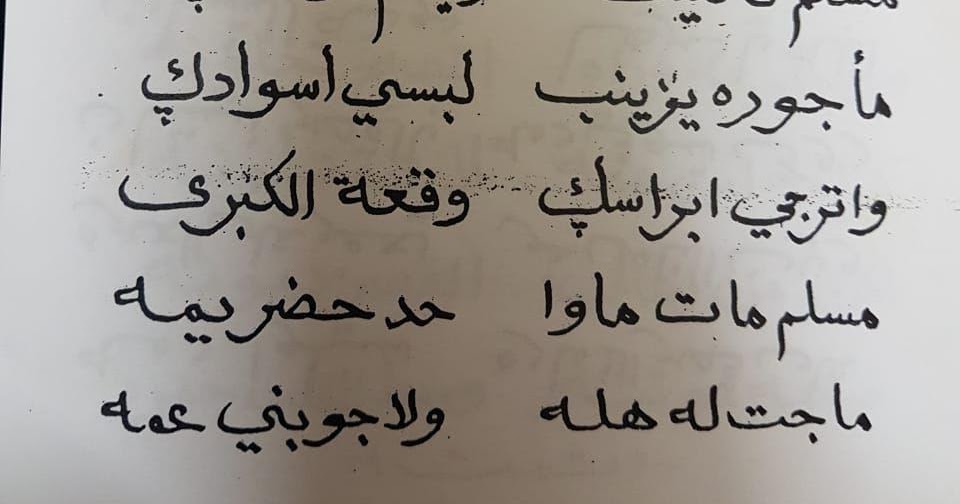 مأجوره يزينب لبسي اسوادچ
واترجي ابراسچ وقعة الكبرى
مسلم مات ماوا حد حضر يمه
ماجت له هله ولا جو بني عمه